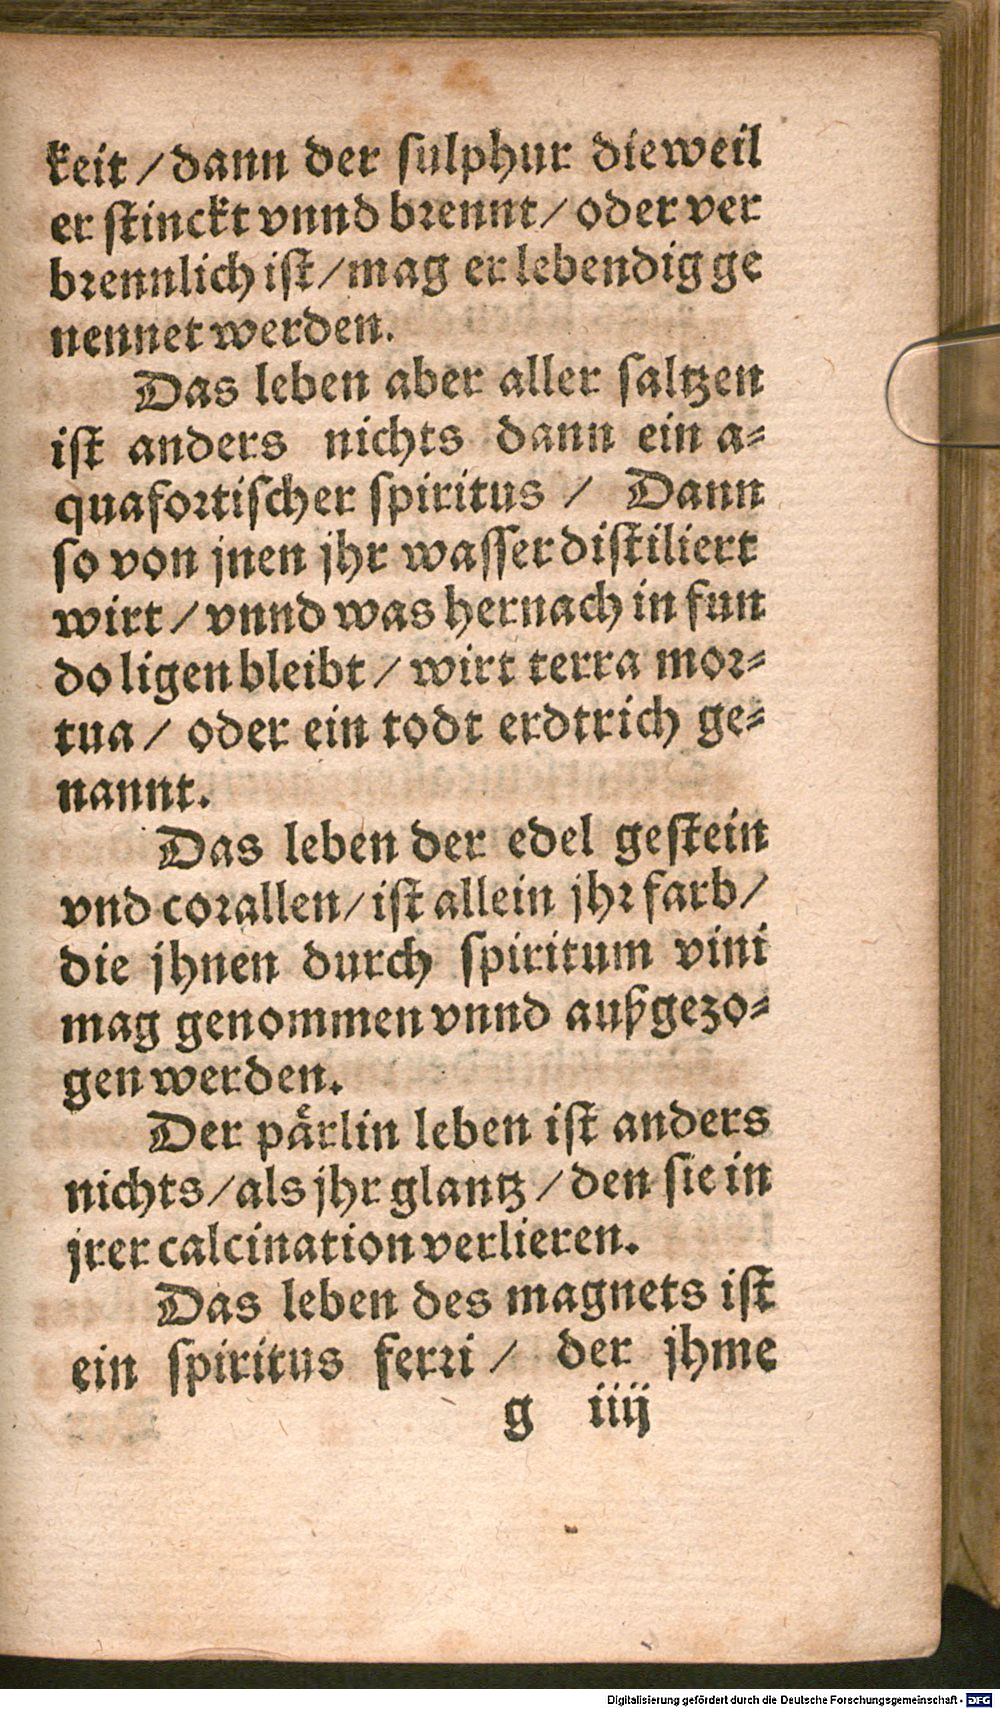 keit / dann der sulphur dieweil
er stinckt vnnd brennt / oder ver
brennlich ist / mag er lebendig ge
nennet werden.
Das leben aber aller saltzen
ist anders nichts dann ein a-
quafortischer spiritus / Dann
so von jnen jhr wasser distiliert
wirt / vnnd was hernach in fun
do ligen bleibt / wirt terra mor-
tua / oder ein todt erdtrich ge-
nannt.
Das leben der edel gestein
vnd corallen / ist allein jhr farb /
die jhnen durch spiritum vini
mag genommen vnnd außgezo-
gen werden.
Der pårlin leben ist anders
nichts / als jhr glantz / den sie in
jrer calcination verlieren.
Das leben des magnets ist
ein spiritus ferri / der jhme
g iiij
Digitalisierung gefördert durch die Deutsche Forschungsgemeinschaft - DFG